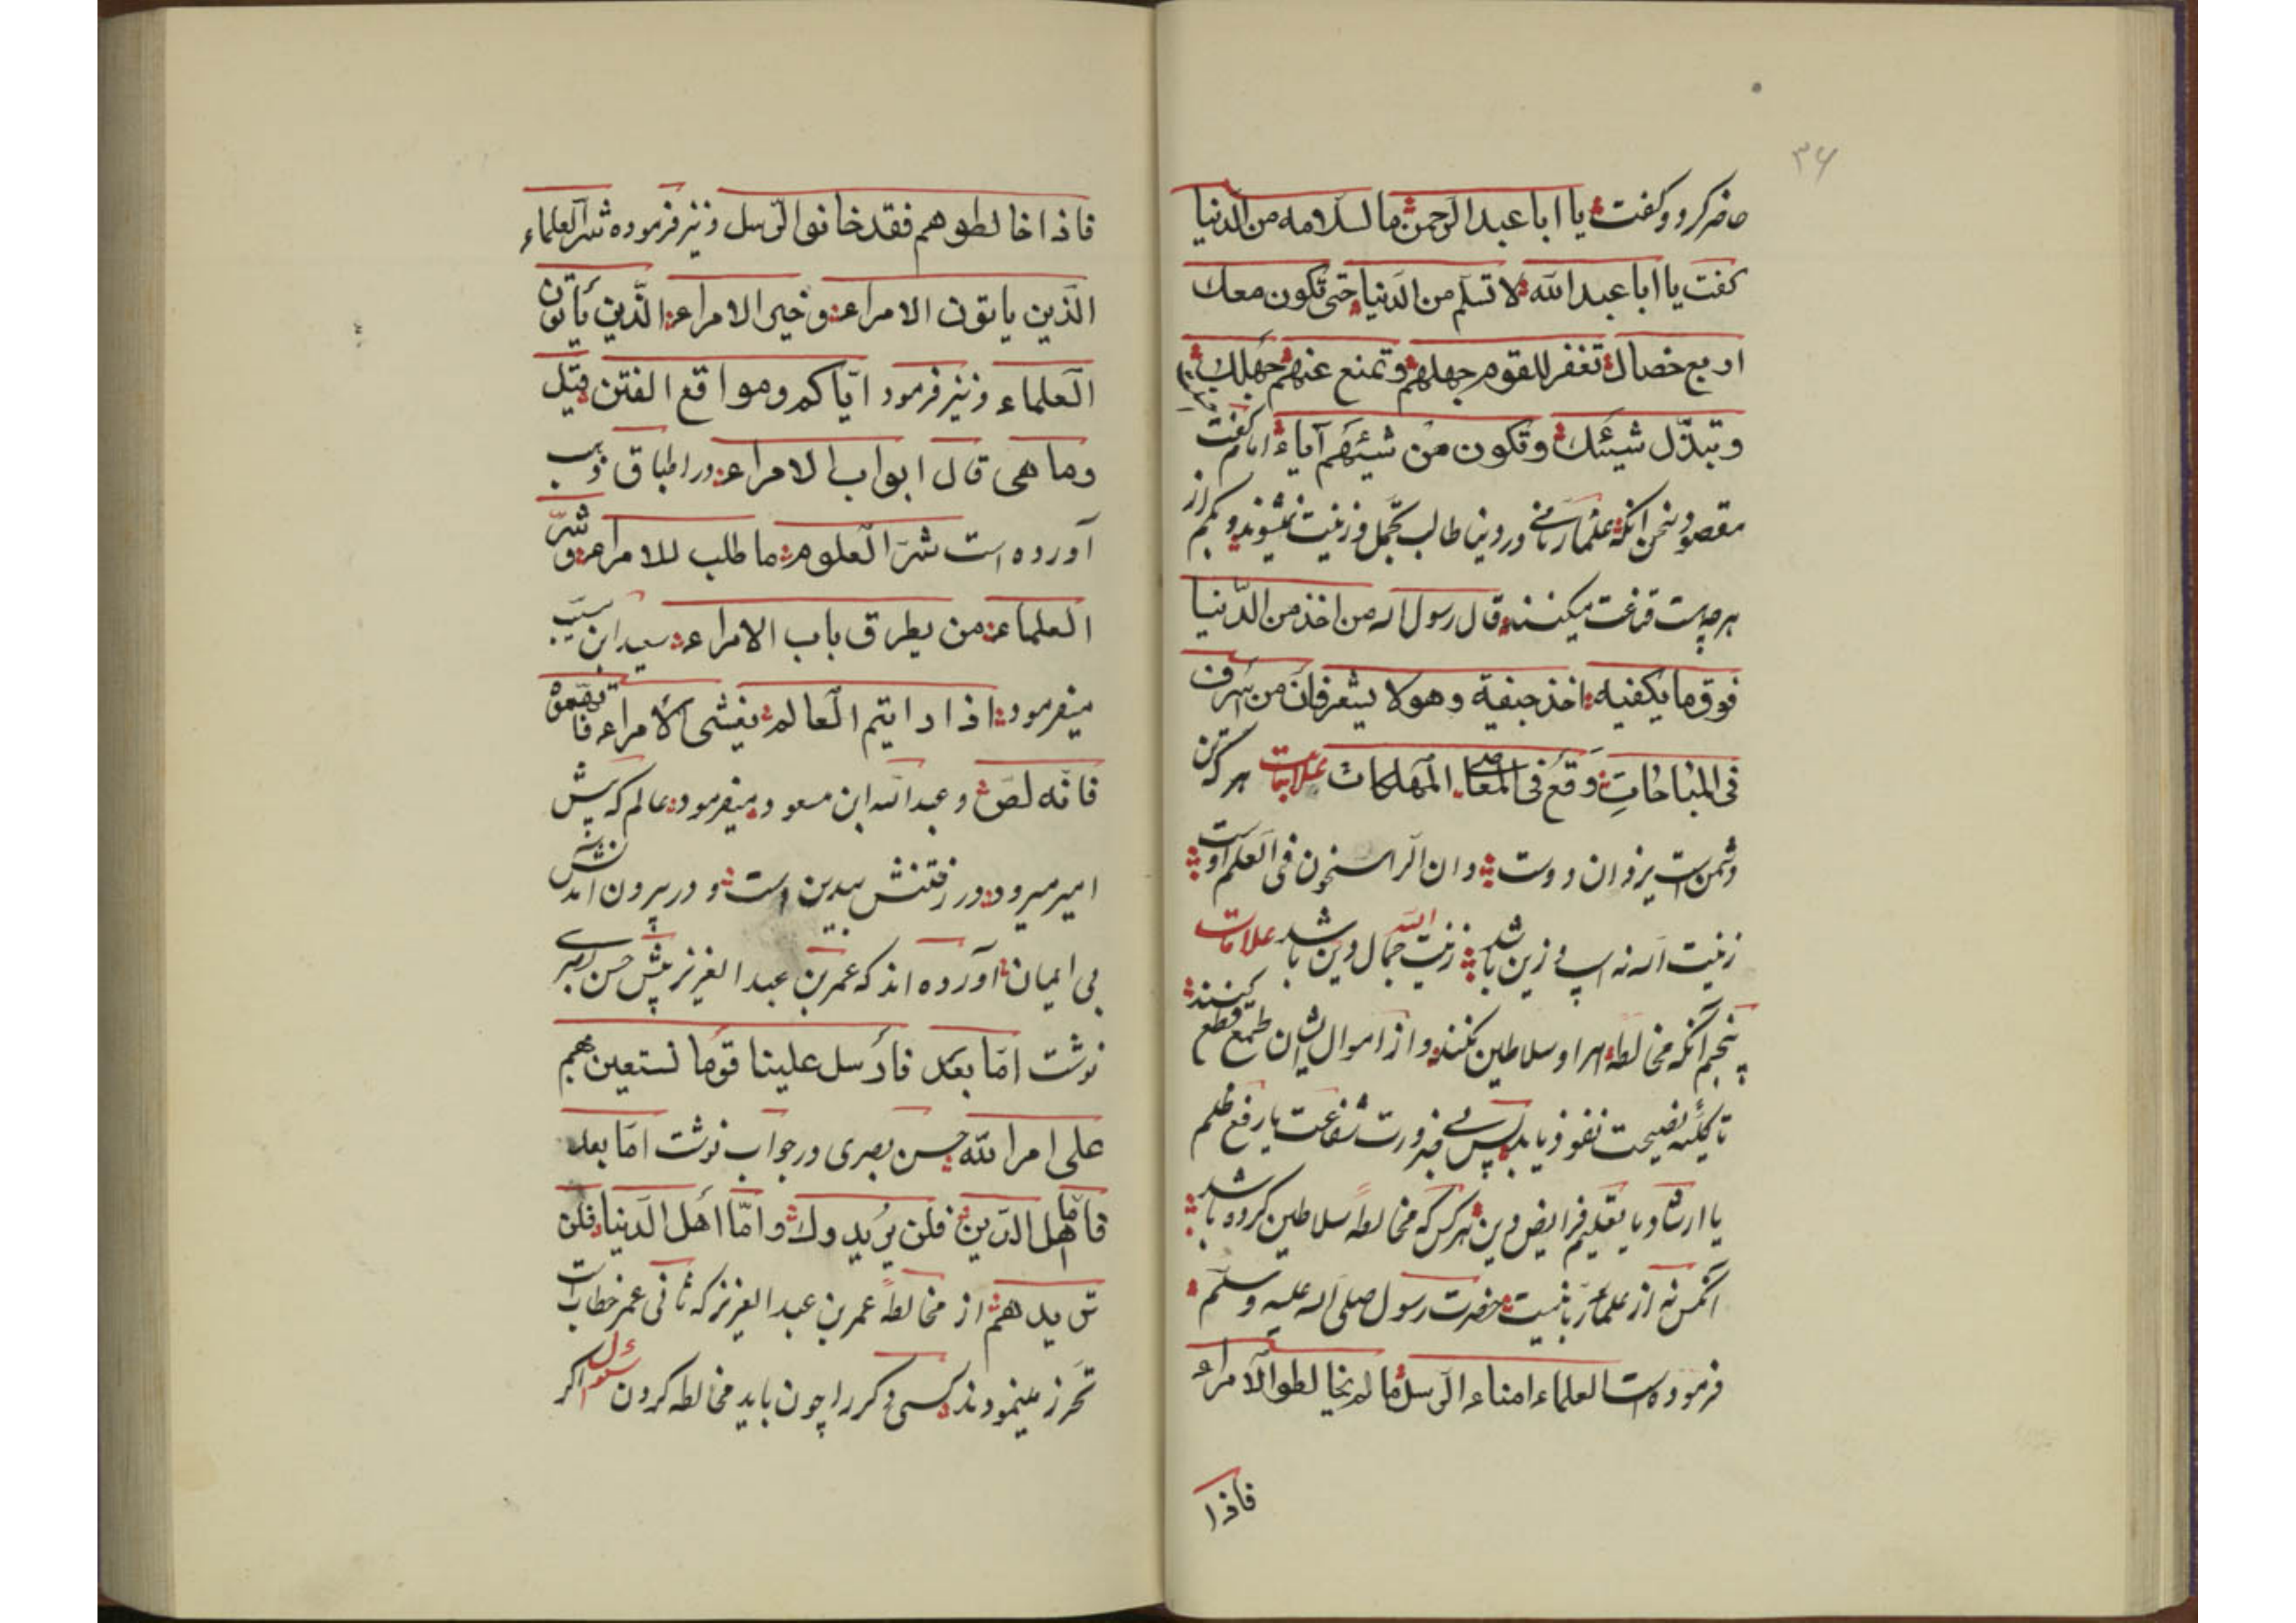 ۳۶
حاضر کرد و گفت یا ابا عبد الرحمن ما السلامه من الدنیا
گفت یا ابا عبد الله لا تسلم من الدنیا حتی تکون معك
اربع خصال تغفر للقوم جهلهم و تمنع عنهم جهلك
و تبذل شیئك و تکون من شیئهم آیاء امام گفت
مقصود سخن آنکه علماء ربانی در دنیا طالب تجمل و زینت نشوند و بکم از
هر چه هست قناعت میکنند قال رسول اله من اخذ من الدنیا
فوق ما یکفیه اخذ جیفة و هو لا یشعر فان من اسرف
فی المباحات وقع فی المعاصی المهلکات علامات هر که تن
دشمن است یزدان دوست و ان الراسخون فی العلم اوست
زینت اله نه اسپ و زین باشد زینت الله جمال دین باشد علامات
پنجم آنکه مخالطه امرا و سلاطین نکنند و از اموال ایشان طمع قطع کنند
تا کلمه نصیحت نفوذ یابد پس بی ضرورت شفاعت یا رفع ظلم
یا ارشاد یا تعلیم فرایض دین هرکس که مخالطه سلاطین کرده باشد
آنکس نه از علماء ربانیست حضرت رسول صلی اله علیه و سلم
فرموده است العلماء امناء الرسل ما لم یخالطوا الامراء
فاذا
فاذا خالطوهم فقد خانوا الرسل و نیز فرموده شر العلماء
الذین یاتون الامراء و خیر الامراء الذین یأتون
العلماء و نیز فرمود ایاکم و مواقع الفتن قیل
وما هی قال ابواب الامراء در اطباق ذهب
آورده است شر العلوم ما طلب للامراء و شر
العلماء من یطرق باب الامراء سعید ابن مسیب
میفرمود اذا رایتم العالم یغشی الامراء فا
فانه لص و عبد الله ابن مسعود میفرمود عالم که پیش
امیر میرود در رفتنش بیدین است و در بیرون آمدنش
بی ایمان آورده اند که عمر بن عبد العزیز پیش حسن بصری
نوشت اما بعد فارسل علینا قوما نستعین بهم
علی امر الله حسن بصری در جواب نوشت اما بعد
فاما اهل الدین فلن یریدوك و اما اهل الدنیا فلن
تریدهم از مخالطه عمر بن عبد العزیز که ثانی عمر خطاب است
تحرز مینمودند کسی دکر را چون باید مخالطه کردن سئوال اکر